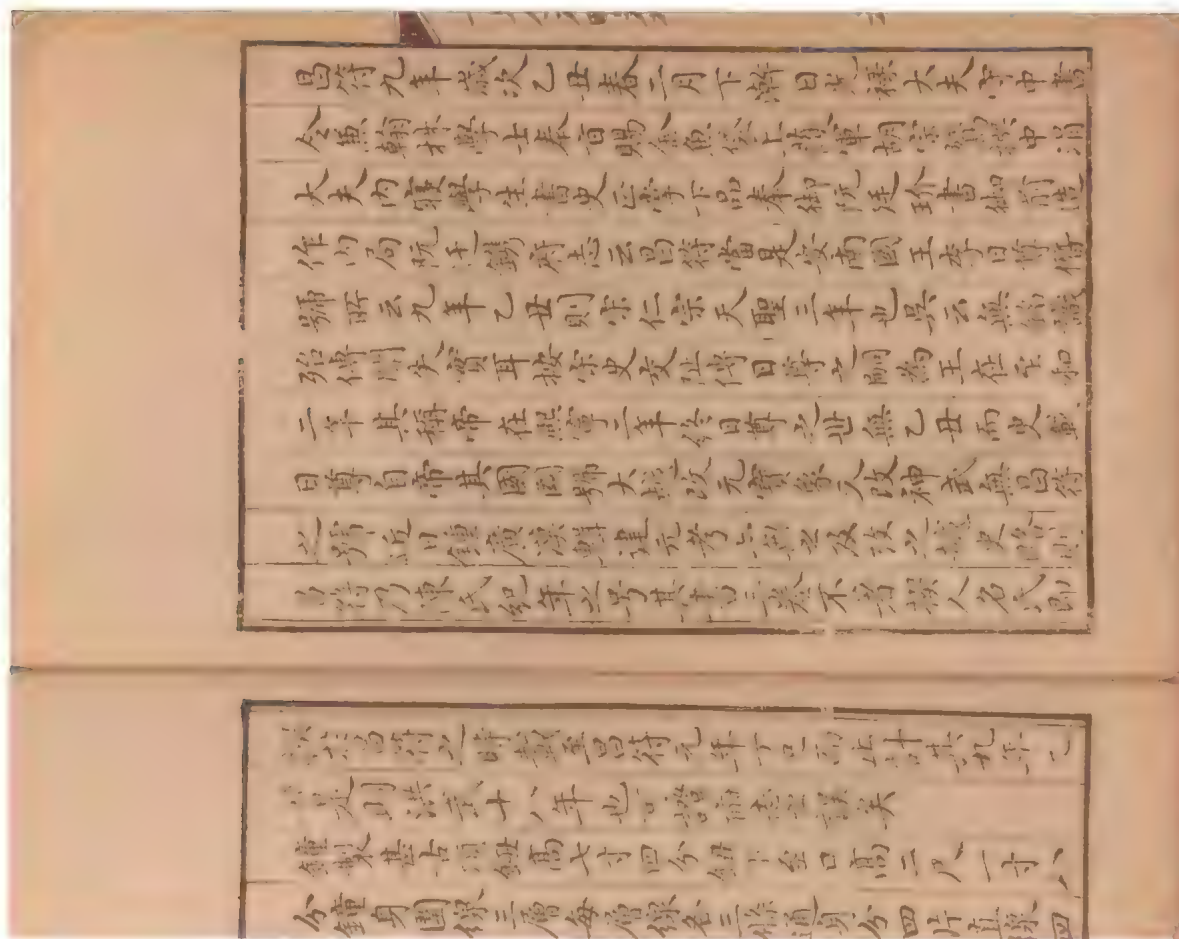 昌符九年歲次乙丑春二月下澣日光祿大夫守中書
令兼翰林學士奉旨賜金魚袋上護軍胡宗鷟撰中涓
大夫內寢學生書史正掌下品奉御阮廷玠書御前造
作內局阮廷鐫府志云昌符當是安南國王李日尊僭
號所云九年乙丑則宋仁宗天聖三年也吳云無銘識
殆傳聞失實耳按宋史交阯傳日尊之嗣為王在至和
二年其稱帝在熙寧二年終日尊之世無乙丑而史載
日尊自帝其國國號大越改元寶象又改神武無昌符
之號近日鍾廣漢輯建元考亦遺之及攷之越史略則
昌符乃陳氏紀年之号其書三卷不著撰人名氏即
撰於昌符之時載至昌符元年丁巳而止計其九年乙
丑是則洪武十八年也證兩志之誤矣
鐘製甚古頂鈕高七寸四分鈕下至口高二尺一寸八
分鐘身圍線三層每層線各三條通身分四片直線四